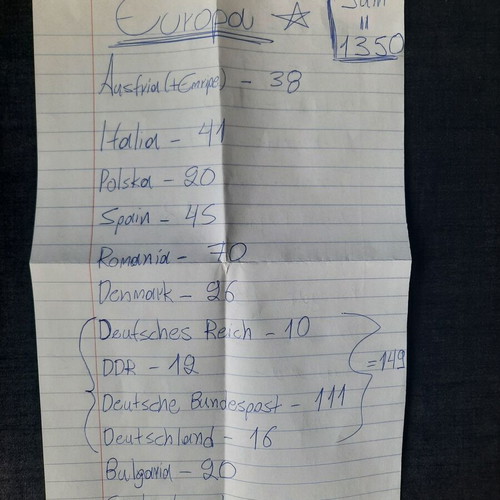 Europa
Sum
=
1350
Austria(+Europe) - 38
Italia - 41
Polska - 20
Spain - 45
Romania - 70
Denmark - 26
Deutsches Reich - 10
DDR - 12
Deutsche Bundespost - 111
Deutschland - 16
=149
Bulgaria - 20